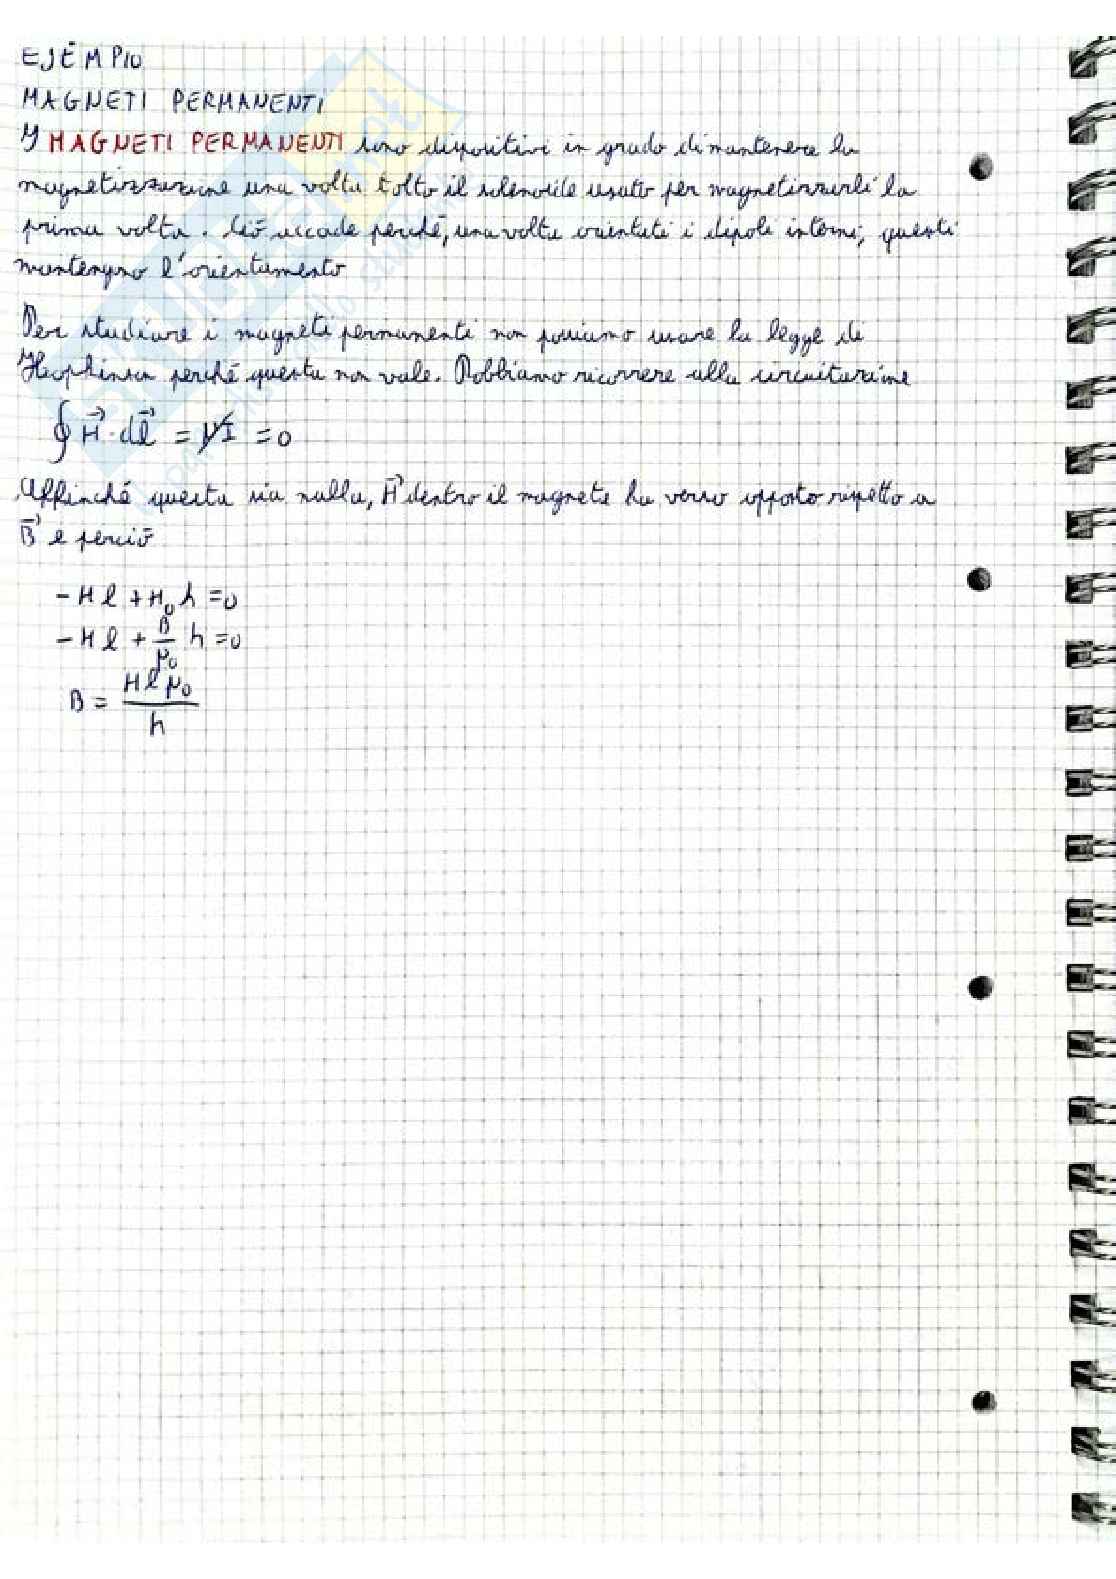 ESEMPIO
MAGNETI PERMANENTI
I MAGNETI PERMANENTI sono dispositivi in grado di mantenere la
magnetizzazione una volta tolto il solenoide usato per magnetizzarli la
prima volta. Ciò accade perché, una volta orientati i dipoli interni, questi
mantengno l'orientamento
Per studiare i magneti permanenti non possiamo usare la legge di
Hopkinson perché questa non vale. Dobbiamo ricorrere alla circuitazione
∮ H⃗ · dl⃗ = NI = 0
Affinché questa sia nulla, H⃗ dentro il magnete ha verso opposto rispetto a
B⃗ e perciò
-Hl + H₀h = 0
-Hl + B/μ₀ h = 0
B = Hlμ₀/h